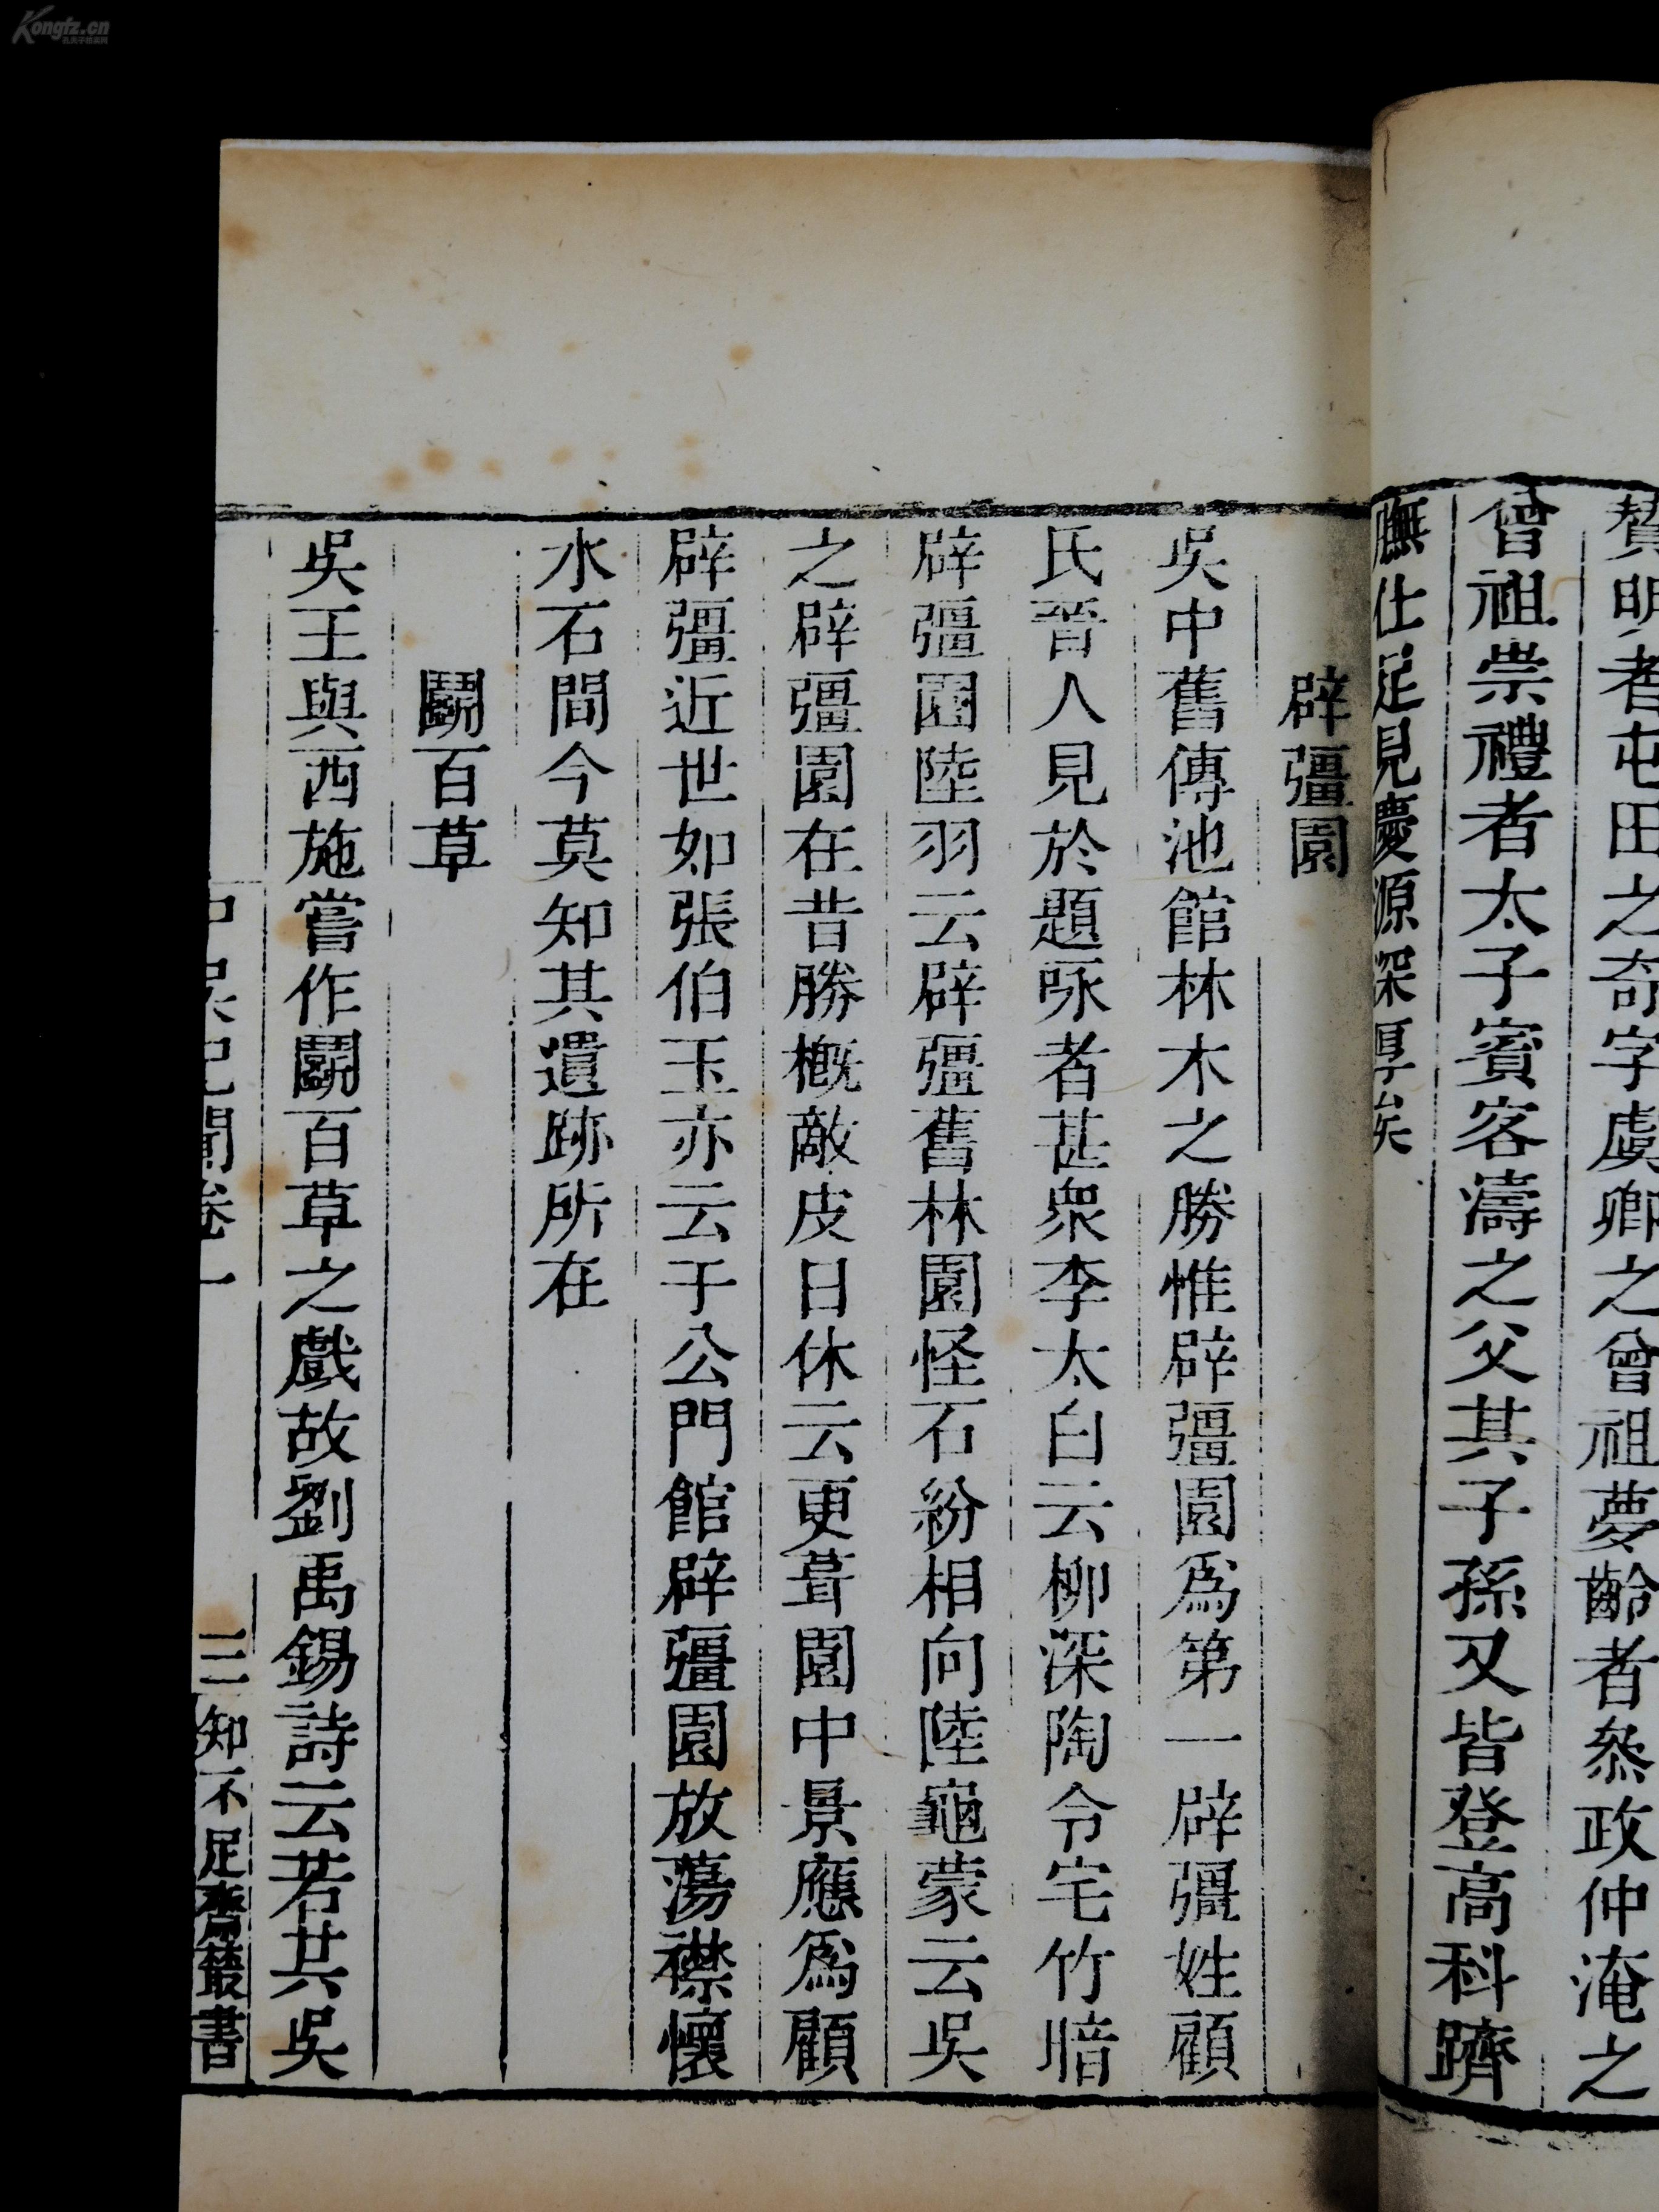 贊明者屯田之奇字虞卿之曾祖夢齡者叅政仲淹之
曾祖崇禮者太子賓客濤之父其子孫又皆登高科躋
膴仕足見慶源深厚矣
辟彊園
吳中舊傳池館林木之勝惟辟彊園爲第一辟彊姓顧
氏晉人見於題咏者甚衆李太白云柳深陶令宅竹暗
辟彊園陸羽云辟彊舊林園怪石紛相向陸龜蒙云吳
之辟彊園在昔勝槪敵皮日休云更葺園中景應爲顧
辟彊近世如張伯玉亦云于公門館辟彊園放蕩襟懷
水石間今莫知其遺跡所在
鬭百草
吳王與西施嘗作鬭百草之戲故劉禹錫詩云若共吳
中吳紀聞卷一
三
知不足齋叢書
Kongfz.cn